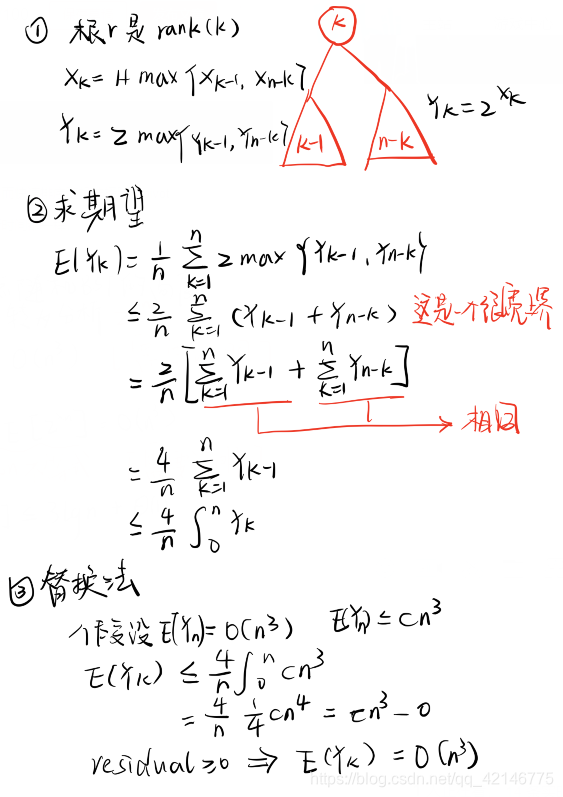 ① 根r是rank(k)
k
X_k = 1+ max{X_{k-1}, X_{n-k}}
Y_k = 2 max{Y_{k-1}, Y_{n-k}}
k-1
n-k
Y_k = 2^{X_k}
② 求期望
E(Y_k) = \frac{1}{n} \sum_{k=1}^{n} 2 max {Y_{k-1}, Y_{n-k}}
≤ \frac{2}{n} \sum_{k=1}^{n} (Y_{k-1} + Y_{n-k}) 这是一个很宽界
= \frac{2}{n} [\sum_{k=1}^{n} Y_{k-1} + \sum_{k=1}^{n} Y_{n-k}]
相同
= \frac{4}{n} \sum_{k=1}^{n} Y_{k-1}
≤ \frac{4}{n} \int_0^n Y_k
③ 替换法
假设 E[Y_n] = O(n^3) E[Y_n] ≤ cn^3
E(Y_k) ≤ \frac{4}{n} \int_0^n cn^3
= \frac{4}{n} \frac{1}{4} cn^4 = cn^3 - 0
residual ≥ 0 ⟹ E(Y_k) = O(n^3)
https://blog.csdn.net/qq_42146775